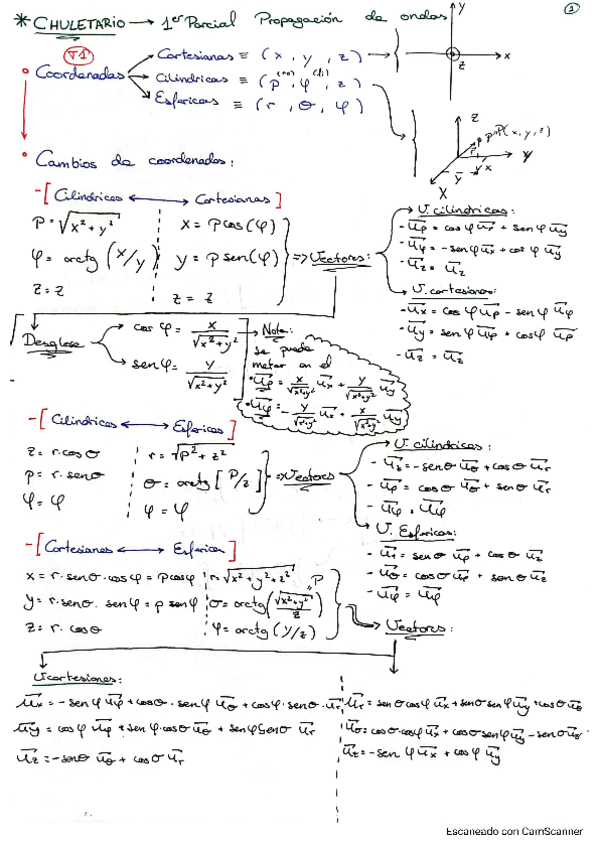 * CHULETARIO → 1er Parcial Propagación de ondas
1
T1
• Coordenadas
Cartesianas ≡ (x, y, z)
Cilíndricas ≡ (ρ, φ, z)
Esféricas ≡ (r, θ, φ)
y
x
z
z
P(x, y, z)
y
x
• Cambios de coordenadas:
-[Cilíndricas ↔ Cartesianas]
ρ = √(x²+y²)
x = ρcos(φ)
φ = arctg(x/y)
y = ρsen(φ)
z = z
z = z
⇒ Vectores:
U. cilíndricas:
- uρ = cosφ ux + senφ uy
- uφ = -senφ ux + cosφ uy
- uz = uz
U. cartesianas:
- ux = cosφ uρ - senφ uφ
- uy = senφ uρ + cosφ uρ
- uz = uz
Desglose
cosφ = x/√(x²+y²)
senφ = y/√(x²+y²)
Nota:
se puede
meter en el
• uρ = x/√(x²+y²) ux + y/√(x²+y²) uy
• uφ = -y/√(x²+y²) ux + x/√(x²+y²) uy
-[Cilíndricas ↔ Esféricas]
z = r·cosθ
r = √(ρ²+z²)
ρ = r·senθ
θ = arctg[ρ/z]
φ = φ
φ = φ
⇒ Vectores
U. cilíndricas:
- uz = -senθ uθ + cosθ ur
- uρ = cosθ uθ + senθ ur
- uφ = uφ
U. Esféricas:
- ur = senθ uρ + cosθ uz
- uθ = cosθ uρ + senθ uz
- uφ = uφ
-[Cartesianas ↔ Esféricas]
x = r·senθ·cosφ = ρcosφ
r = √(x²+y²+z²)
y = r·senθ·senφ = ρsenφ
θ = arctg(√(x²+y²)/z)
ρ
z = r·cosθ
φ = arctg(y/z)
Vectores:
U. cartesianas:
ux = -senφ uφ + cosθ·senφ uθ + cosφ·senθ·ur
ur = senθcosφ ux + senθsenφ uy + cosθ uθ
uy = cosφ uφ + senφ·cosθ uθ + senφsenθ ur
uθ = cosθ·cosφ ux + cosθsenφ uy - senθ uz
uz = -senθ uθ + cosθ ur
uz = -senφ ux + cosφ uy
Escaneado con CamScanner